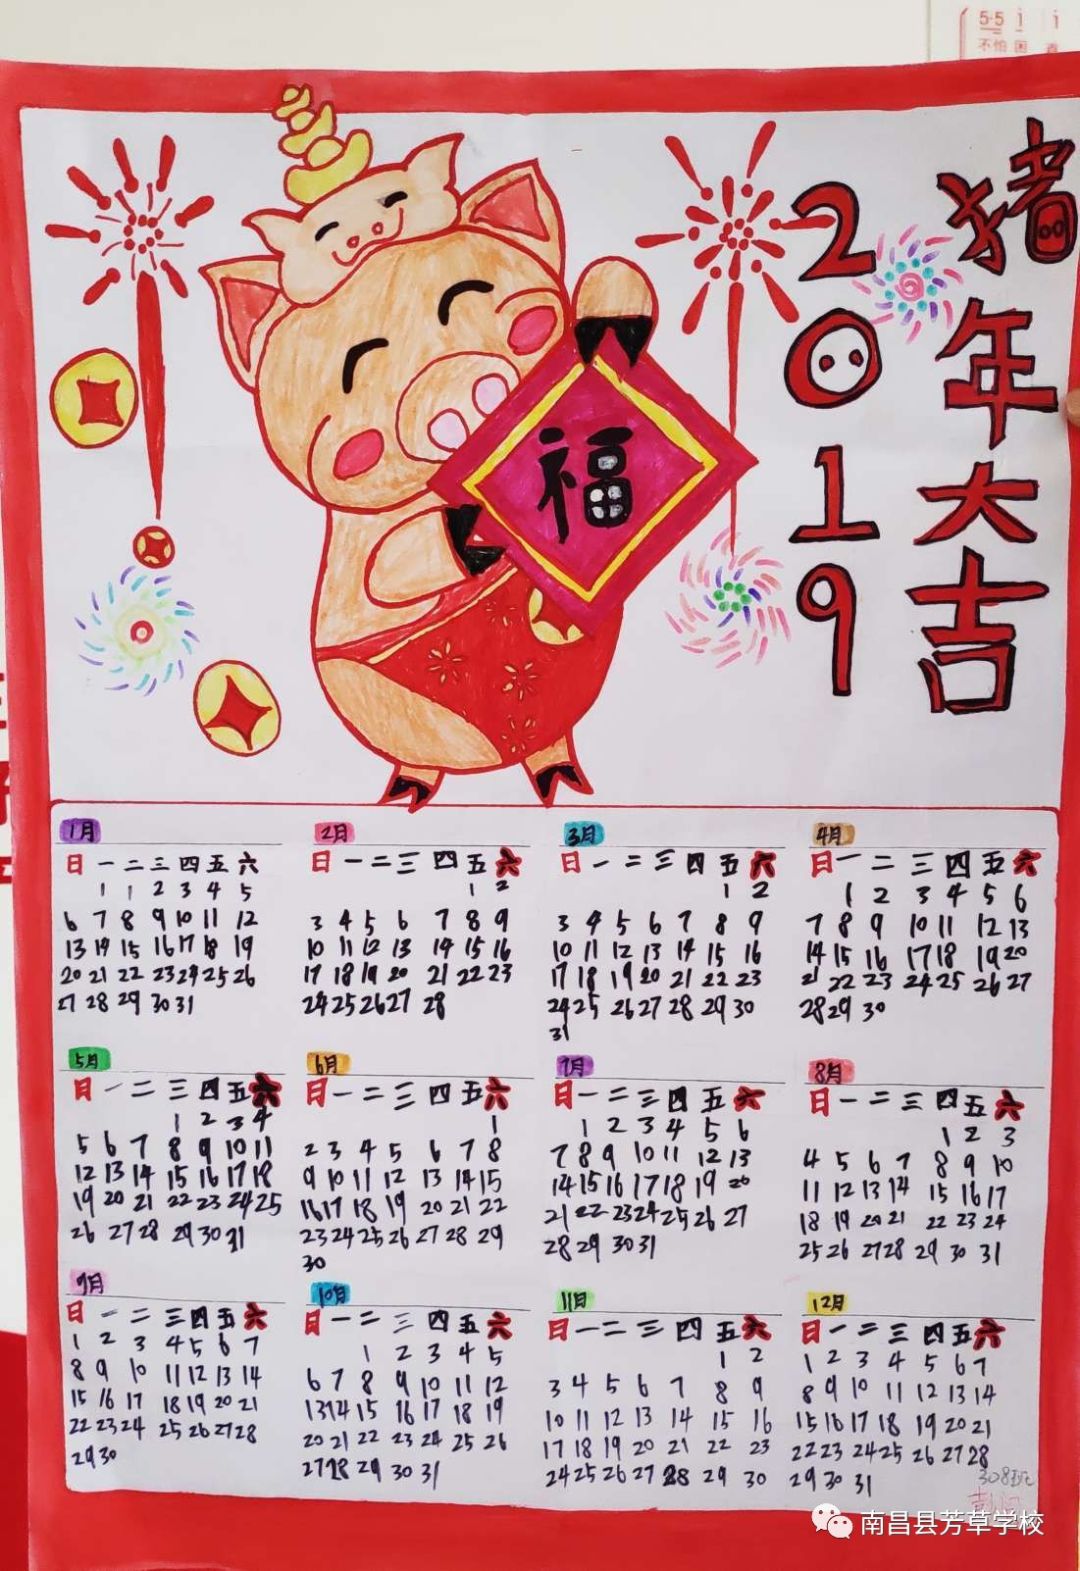 5·5 i i
不怕困
猪年大吉
2019
福
1月
日 一 二 三 四 五 六
1 1 2 3 4 5
6 7 8 9 10 11 12
13 14 15 16 17 18 19
20 21 22 23 24 25 26
27 28 29 30 31
2月
日 一 二 三 四 五 六
1 2
3 4 5 6 7 8 9
10 11 12 13 14 15 16
17 18 19 20 21 22 23
24 25 26 27 28
3月
日 一 二 三 四 五 六
1 2
3 4 5 6 7 8 9
10 11 12 13 14 15 16
17 18 19 20 21 22 23
24 25 26 27 28 29 30
31
4月
日 一 二 三 四 五 六
1 2 3 4 5 6
7 8 9 10 11 12 13
14 15 16 17 18 19 20
21 22 23 24 25 26 27
28 29 30
5月
日 一 二 三 四 五 六
1 2 3 4
5 6 7 8 9 10 11
12 13 14 15 16 17 18
19 20 21 22 23 24 25
26 27 28 29 30 31
6月
日 一 二 三 四 五 六
1
2 3 4 5 6 7 8
9 10 11 12 13 14 15
16 17 18 19 20 21 22
23 24 25 26 27 28 29
30
7月
日 一 二 三 四 五 六
1 2 3 4 5 6
7 8 9 10 11 12 13
14 15 16 17 18 19 20
21 22 23 24 25 26 27
28 29 30 31
8月
日 一 二 三 四 五 六
1 2 3
4 5 6 7 8 9 10
11 12 13 14 15 16 17
18 19 20 21 22 23 24
25 26 27 28 29 30 31
9月
日 一 二 三 四 五 六
1 2 3 4 5 6 7
8 9 10 11 12 13 14
15 16 17 18 19 20 21
22 23 24 25 26 27 28
29 30
10月
日 一 二 三 四 五 六
1 2 3 4 5
6 7 8 9 10 11 12
13 14 15 16 17 18 19
20 21 22 23 24 25 26
27 28 29 30 31
11月
日 一 二 三 四 五 六
1 2
3 4 5 6 7 8 9
10 11 12 13 14 15 16
17 18 19 20 21 22 23
24 25 26 27 28 29 30
12月
日 一 二 三 四 五 六
1 2 3 4 5 6 7
8 9 10 11 12 13 14
15 16 17 18 19 20 21
22 23 24 25 26 27 28
29 30 31
308班
南昌县芳草学校